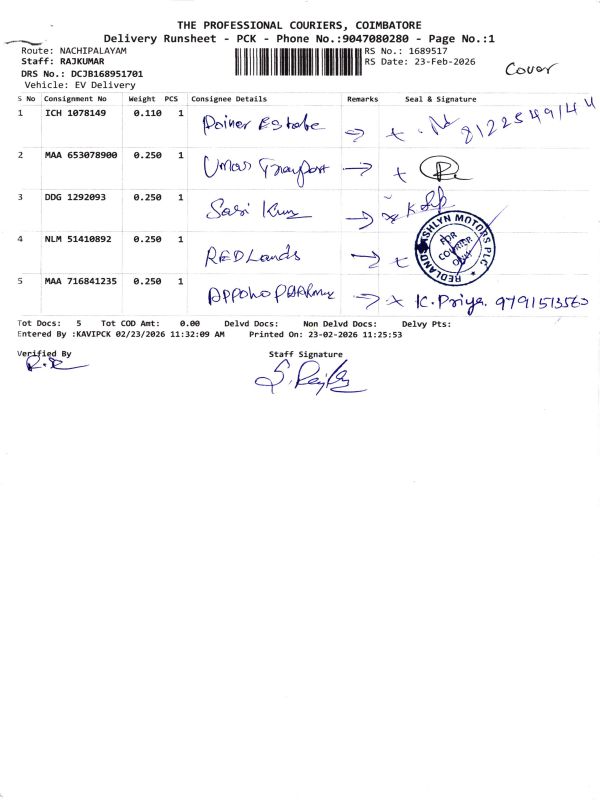 THE PROFESSIONAL COURIERS, COIMBATORE
Delivery Runsheet - PCK - Phone No.:9047080280 - Page No.:1
Route: NACHIPALAYAM
RS No.: 1689517
Staff: RAJKUMAR
RS Date: 23-Feb-2026
Cover
DRS No.: DCJB168951701
Vehicle: EV Delivery
S No Consignment No Weight PCS Consignee Details Remarks Seal & Signature
1 ICH 1078149 0.110 1 Estate 8122549144
2 MAA 653078900 0.250 1 Umas
3 DDG 1292093 0.250 1 Sasi
4 NLM 51410892 0.250 1 REDLands
REDLANDS ASHLYN MOTORS PLC
FOR COURIER ONLY
5 MAA 716841235 0.250 1 K. Priya. 9791513560
Tot Docs: 5 Tot COD Amt: 0.00 Delvd Docs: Non Delvd Docs: Delvy Pts:
Entered By :KAVIPCK 02/23/2026 11:32:09 AM Printed On: 23-02-2026 11:25:53
Verified By Staff Signature